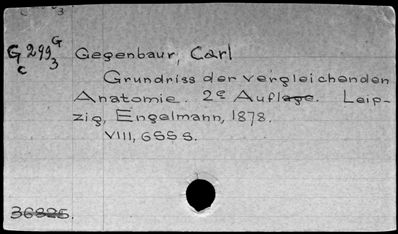 G 299 G
c 3
Gegenbaur, Carl
Grundriss der vergleichenden
Anatomie. 2e Auflage. Leip-
zig, Engelmann, 1878.
VIII, 655 S.
36825.